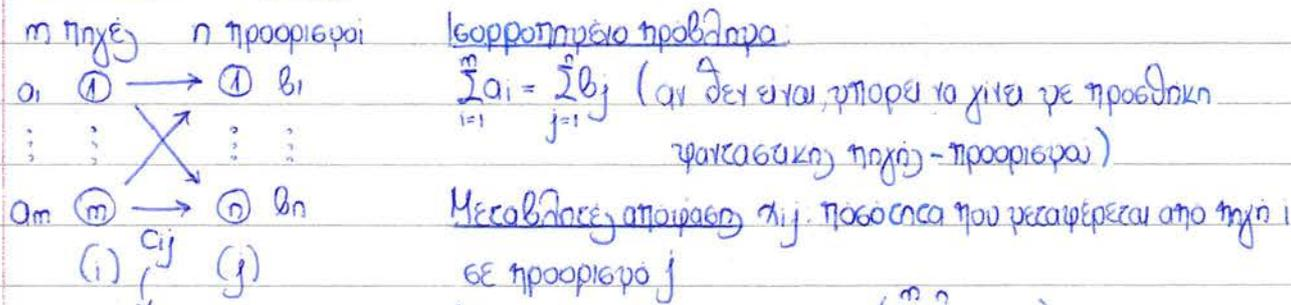 m πηγές n προορισμοί Ισορροπημένο πρόβλημα:
a₁ ① → ① b₁ $\sum_{i=1}^{m} a_i = \sum_{j=1}^{n} b_j$ (αν δεν είναι, μπορεί να γίνει με προσθήκη
⋮ ⋮ ⋮ ⋮ φανταστικής πηγής - προορισμού)
aₘ ⓜ → ⓝ bₙ Μεταβλητές απόφασης xᵢⱼ: ποσότητα που μεταφέρεται από πηγή i
(i) cᵢⱼ (j) σε προορισμό j
m n